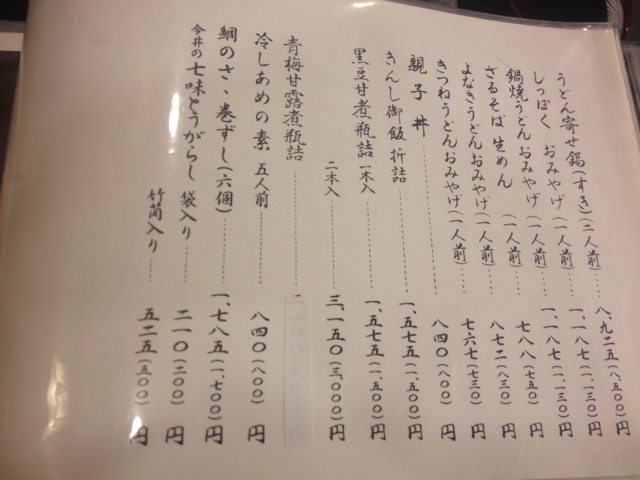 うどん寄せ鍋(すき)(二人前)……八、九二五(八、五〇〇)円
しっぽく おみやげ(一人前)……一、一八七(一、一三〇)円
鍋焼うどん おみやげ(一人前)……一、一八七(一、一三〇)円
ざるそば 生めん (一人前)……七八八(七五〇)円
よなきうどんおみやげ(一人前)……八七二(八三〇)円
きつねうどんおみやげ(一人前)……七六七(七三〇)円
親子丼……八四〇(八〇〇)円
きんし御飯 折詰……一、五七五(一、五〇〇)円
黒豆甘煮瓶詰 一本入……一、五七五(一、五〇〇)円
二本入……三、一五〇(三、〇〇〇)円
青梅甘露煮瓶詰……二、一〇〇(二、〇〇〇)円
冷しあめの素 五人前……八四〇(八〇〇)円
鯛のさゝ巻ずし(六個)……一、七八五(一、七〇〇)円
今井の七味とうがらし 袋入り……二一〇(二〇〇)円
竹筒入り……五二五(五〇〇)円